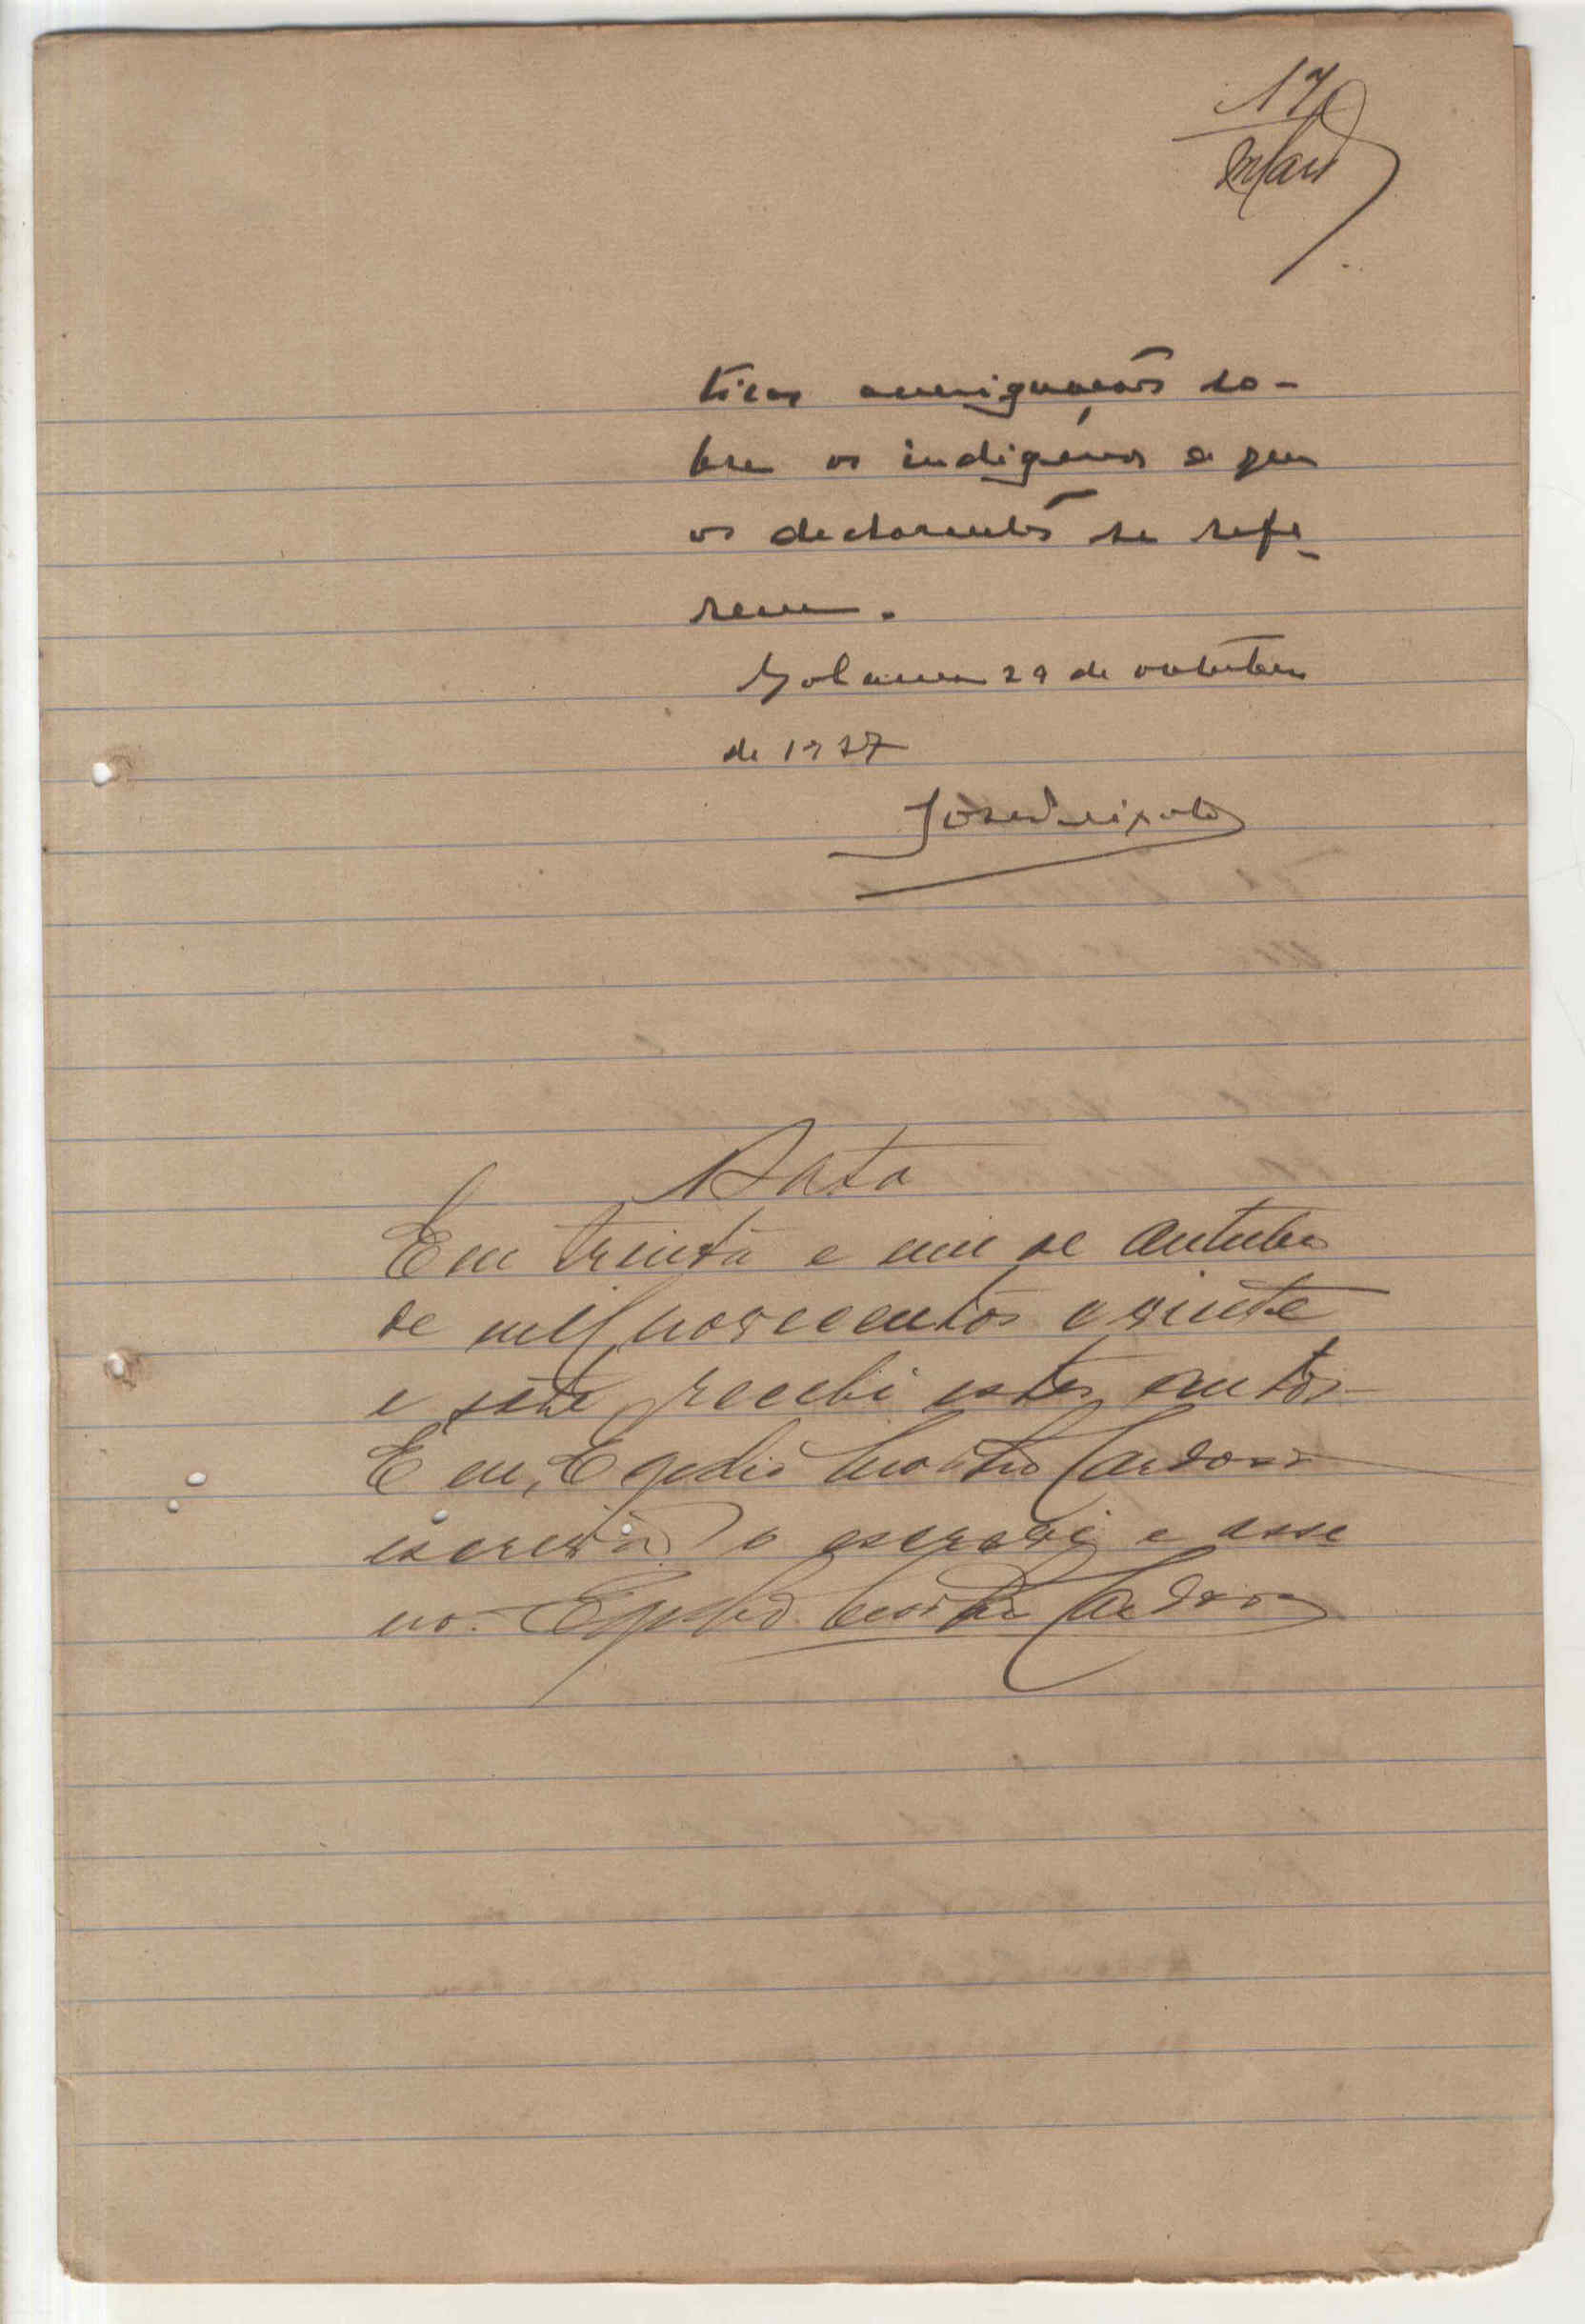 17
ticas averiguações so-
bre os indigenas a que
os declarantes se refe-
rem.
29 de outubro
de 1927
José Peixoto
Data
Em trinta e um de Outubro
de mil novecentos e vinte
e sete recebi estes autos.
E eu, Egidio Cardoso
escrivão o escrevi e assi
no. Egidio Cardoso